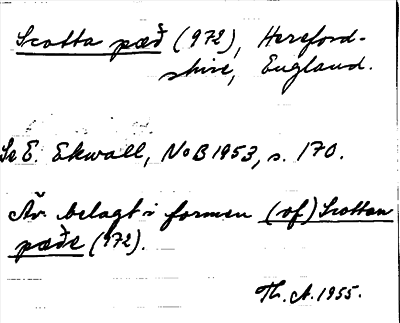 Scotta pæð (972), Hereford-
shire, England.
Se E. Ekwall, NoB 1953, s. 170.
Äv. belagt i formen (of) Scottan
pæðe (972).
Th. A. 1955.